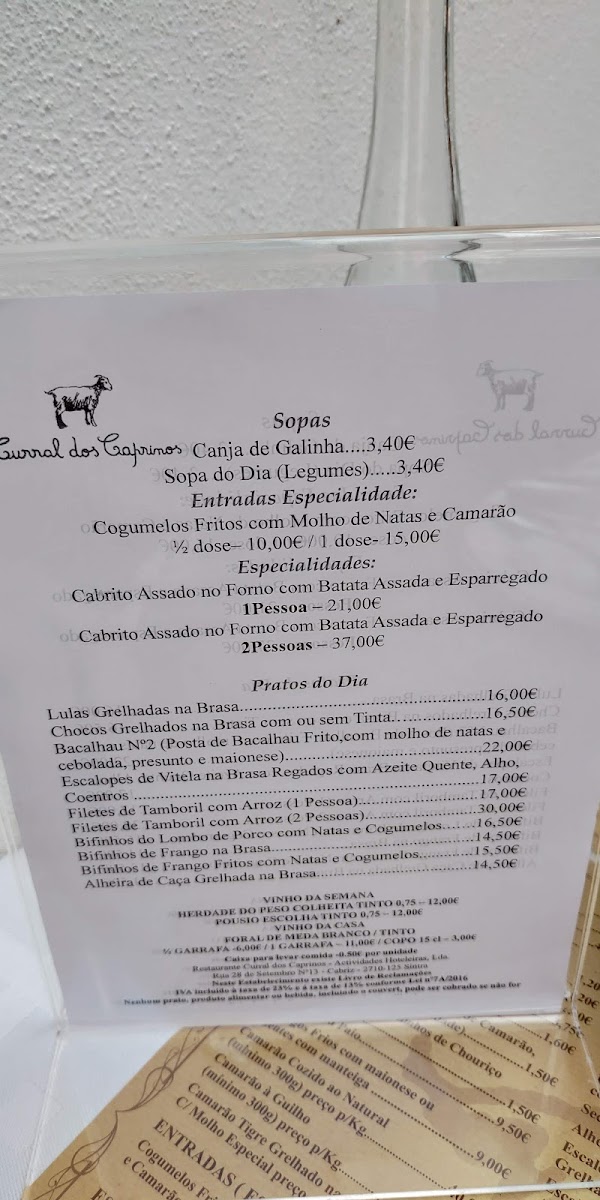 Sopas
Curral dos Caprinos
Canja de Galinha....3,40€
Sopa do Dia (Legumes).....3,40€
Entradas Especialidade:
Cogumelos Fritos com Molho de Natas e Camarão
½ dose– 10,00€ / 1 dose- 15,00€
Especialidades:
Cabrito Assado no Forno com Batata Assada e Esparregado
1Pessoa – 21,00€
Cabrito Assado no Forno com Batata Assada e Esparregado
2Pessoas – 37,00€
Pratos do Dia
Lulas Grelhadas na Brasa...16,00€
Chocos Grelhados na Brasa com ou sem Tinta...16,50€
Bacalhau Nº2 (Posta de Bacalhau Frito,com molho de natas e
cebolada, presunto e maionese)...22,00€
Escalopes de Vitela na Brasa Regados com Azeite Quente, Alho,
Coentros ...17,00€
Filetes de Tamboril com Arroz (1 Pessoa)...17,00€
Filetes de Tamboril com Arroz (2 Pessoas)...30,00€
Bifinhos do Lombo de Porco com Natas e Cogumelos...16,50€
Bifinhos de Frango na Brasa...14,50€
Bifinhos de Frango Fritos com Natas e Cogumelos...15,50€
Alheira de Caça Grelhada na Brasa...14,50€
VINHO DA SEMANA
HERDADE DO PESO COLHEITA TINTO 0,75 – 12,00€
POUSIO ESCOLHA TINTO 0,75 – 12,00€
VINHO DA CASA
FORAL DE MEDA BRANCO / TINTO
½ GARRAFA -6,00€ / 1 GARRAFA – 11,00€ / COPO 15 cl – 3,00€
Caixa para levar comida -0.50€ por unidade
Restaurante Curral dos Caprinos - Actividades Hoteleiras, Lda.
Rua 28 de Setembro Nº13 - Cabriz - 2710-123 Sintra
Neste Estabelecimento existe Livro de Reclamações
IVA incluido à taxa de 23% e à taxa de 13% conforme Lei nº7A/2016
Nenhum prato, produto alimentar ou bebida, incluindo o couvert, pode ser cobrado se não for
Camarão,
Chouriço
1,60€
Frios com maionese ou
com manteiga ...1,50€
Camarão Cozido ao Natural
(mínimo 300g) preço p/Kg...1,50€
9,50€
Camarão à Guilho
(mínimo 300g) preço p/Kg...
Camarão Tigre Grelhado na
C/Molho Especial preço
9,00€
ENTRADAS
Cogumelos
e Camarão